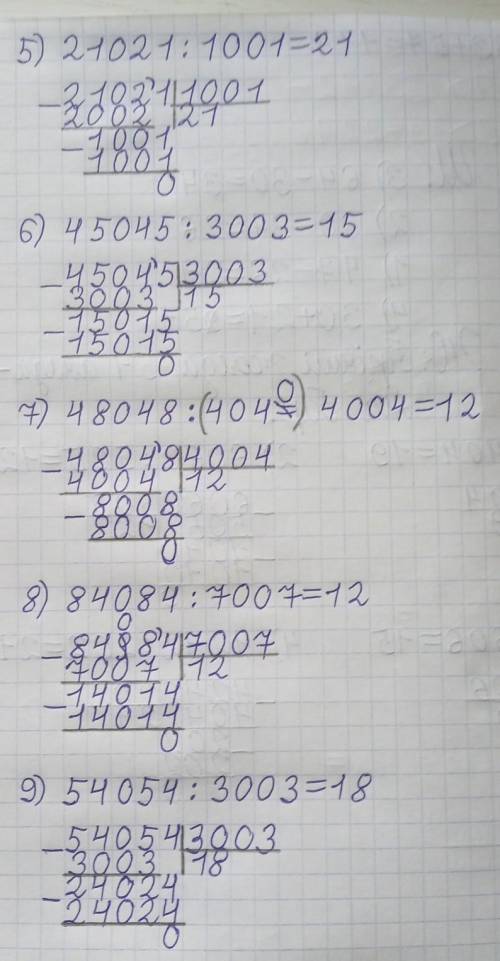 5) 21021 : 1001 = 21
- 21021 | 1001
2002 | 21
- 1001
1001
0
6) 45045 : 3003 = 15
- 45045 | 3003
3003 | 15
- 15015
15015
0
7) 48048 : (404 0) 4004 = 12
- 48048 | 4004
4004 | 12
- 8008
8008
0
8) 84084 : 7007 = 12
0
- 84884 | 7007
7007 | 12
- 14014
14014
0
9) 54054 : 3003 = 18
- 54054 | 3003
3003 | 18
- 24024
24024
0